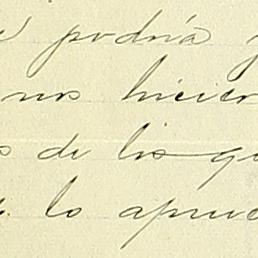 podría
nos hicier
s de los qu
lo aprue